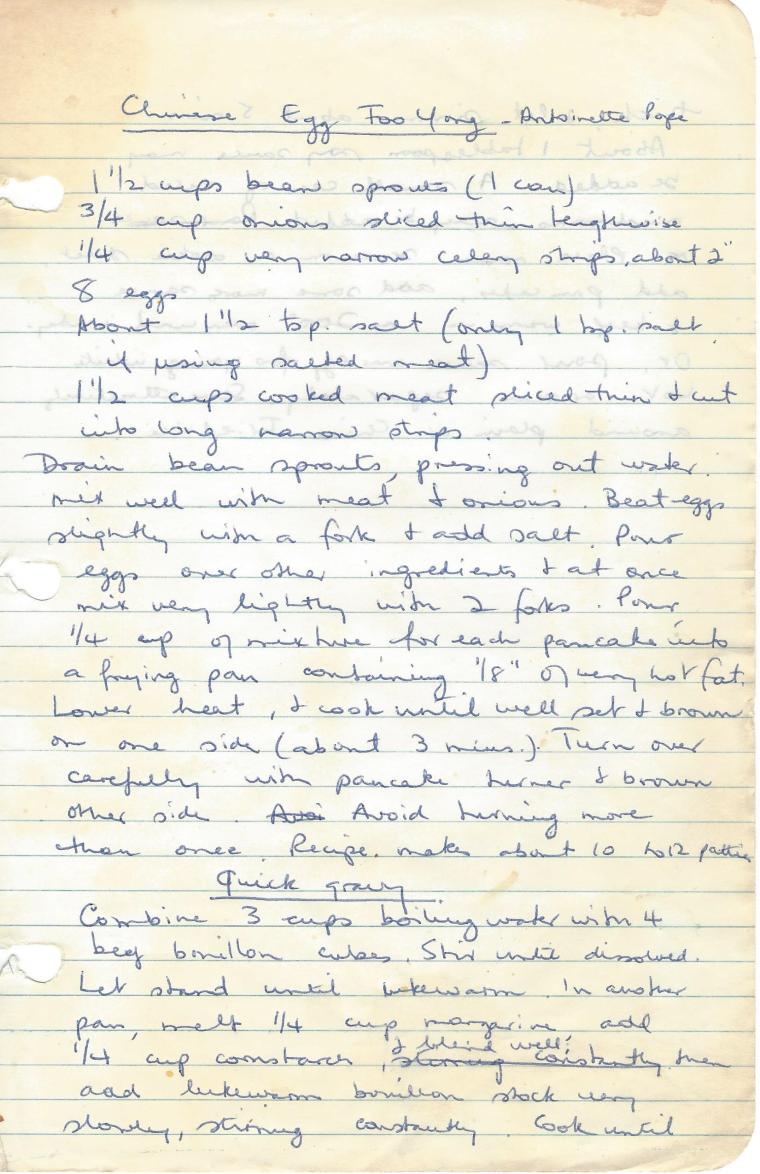 Chinese Egg Foo Yong - Antoinette Pope
1 1/2 cups bean sprouts (1 can)
3/4 cup onions sliced thin lengthwise
1/4 cup very narrow celery strips, about 2"
8 eggs
About 1 1/2 tsp. salt (only 1 tsp. salt
if using salted meat)
1 1/2 cups cooked meat sliced thin & cut
into long narrow strips.
Drain bean sprouts, pressing out water.
mix well with meat & onions. Beat eggs
slightly with a fork & add salt. Pour
eggs over other ingredients & at once
mix very lightly with 2 forks. Pour
1/4 cup of mixture for each pancake into
a frying pan containing 1/8" of very hot fat.
Lower heat, & cook until well set & brown
on one side (about 3 mins.). Turn over
carefully with pancake turner & brown
other side. Avoi Avoid turning more
than once. Recipe makes about 10 to 12 patties
Quick gravy
Combine 3 cups boiling water with 4
beef bouillon cubes. Stir until dissolved.
Let stand until lukewarm. In another
pan, melt 1/4 cup margarine, add
& blend well;
1/4 cup cornstarch, stirring constantly, then
add lukewarm bouillon stock very
slowly, stirring constantly. Cook until